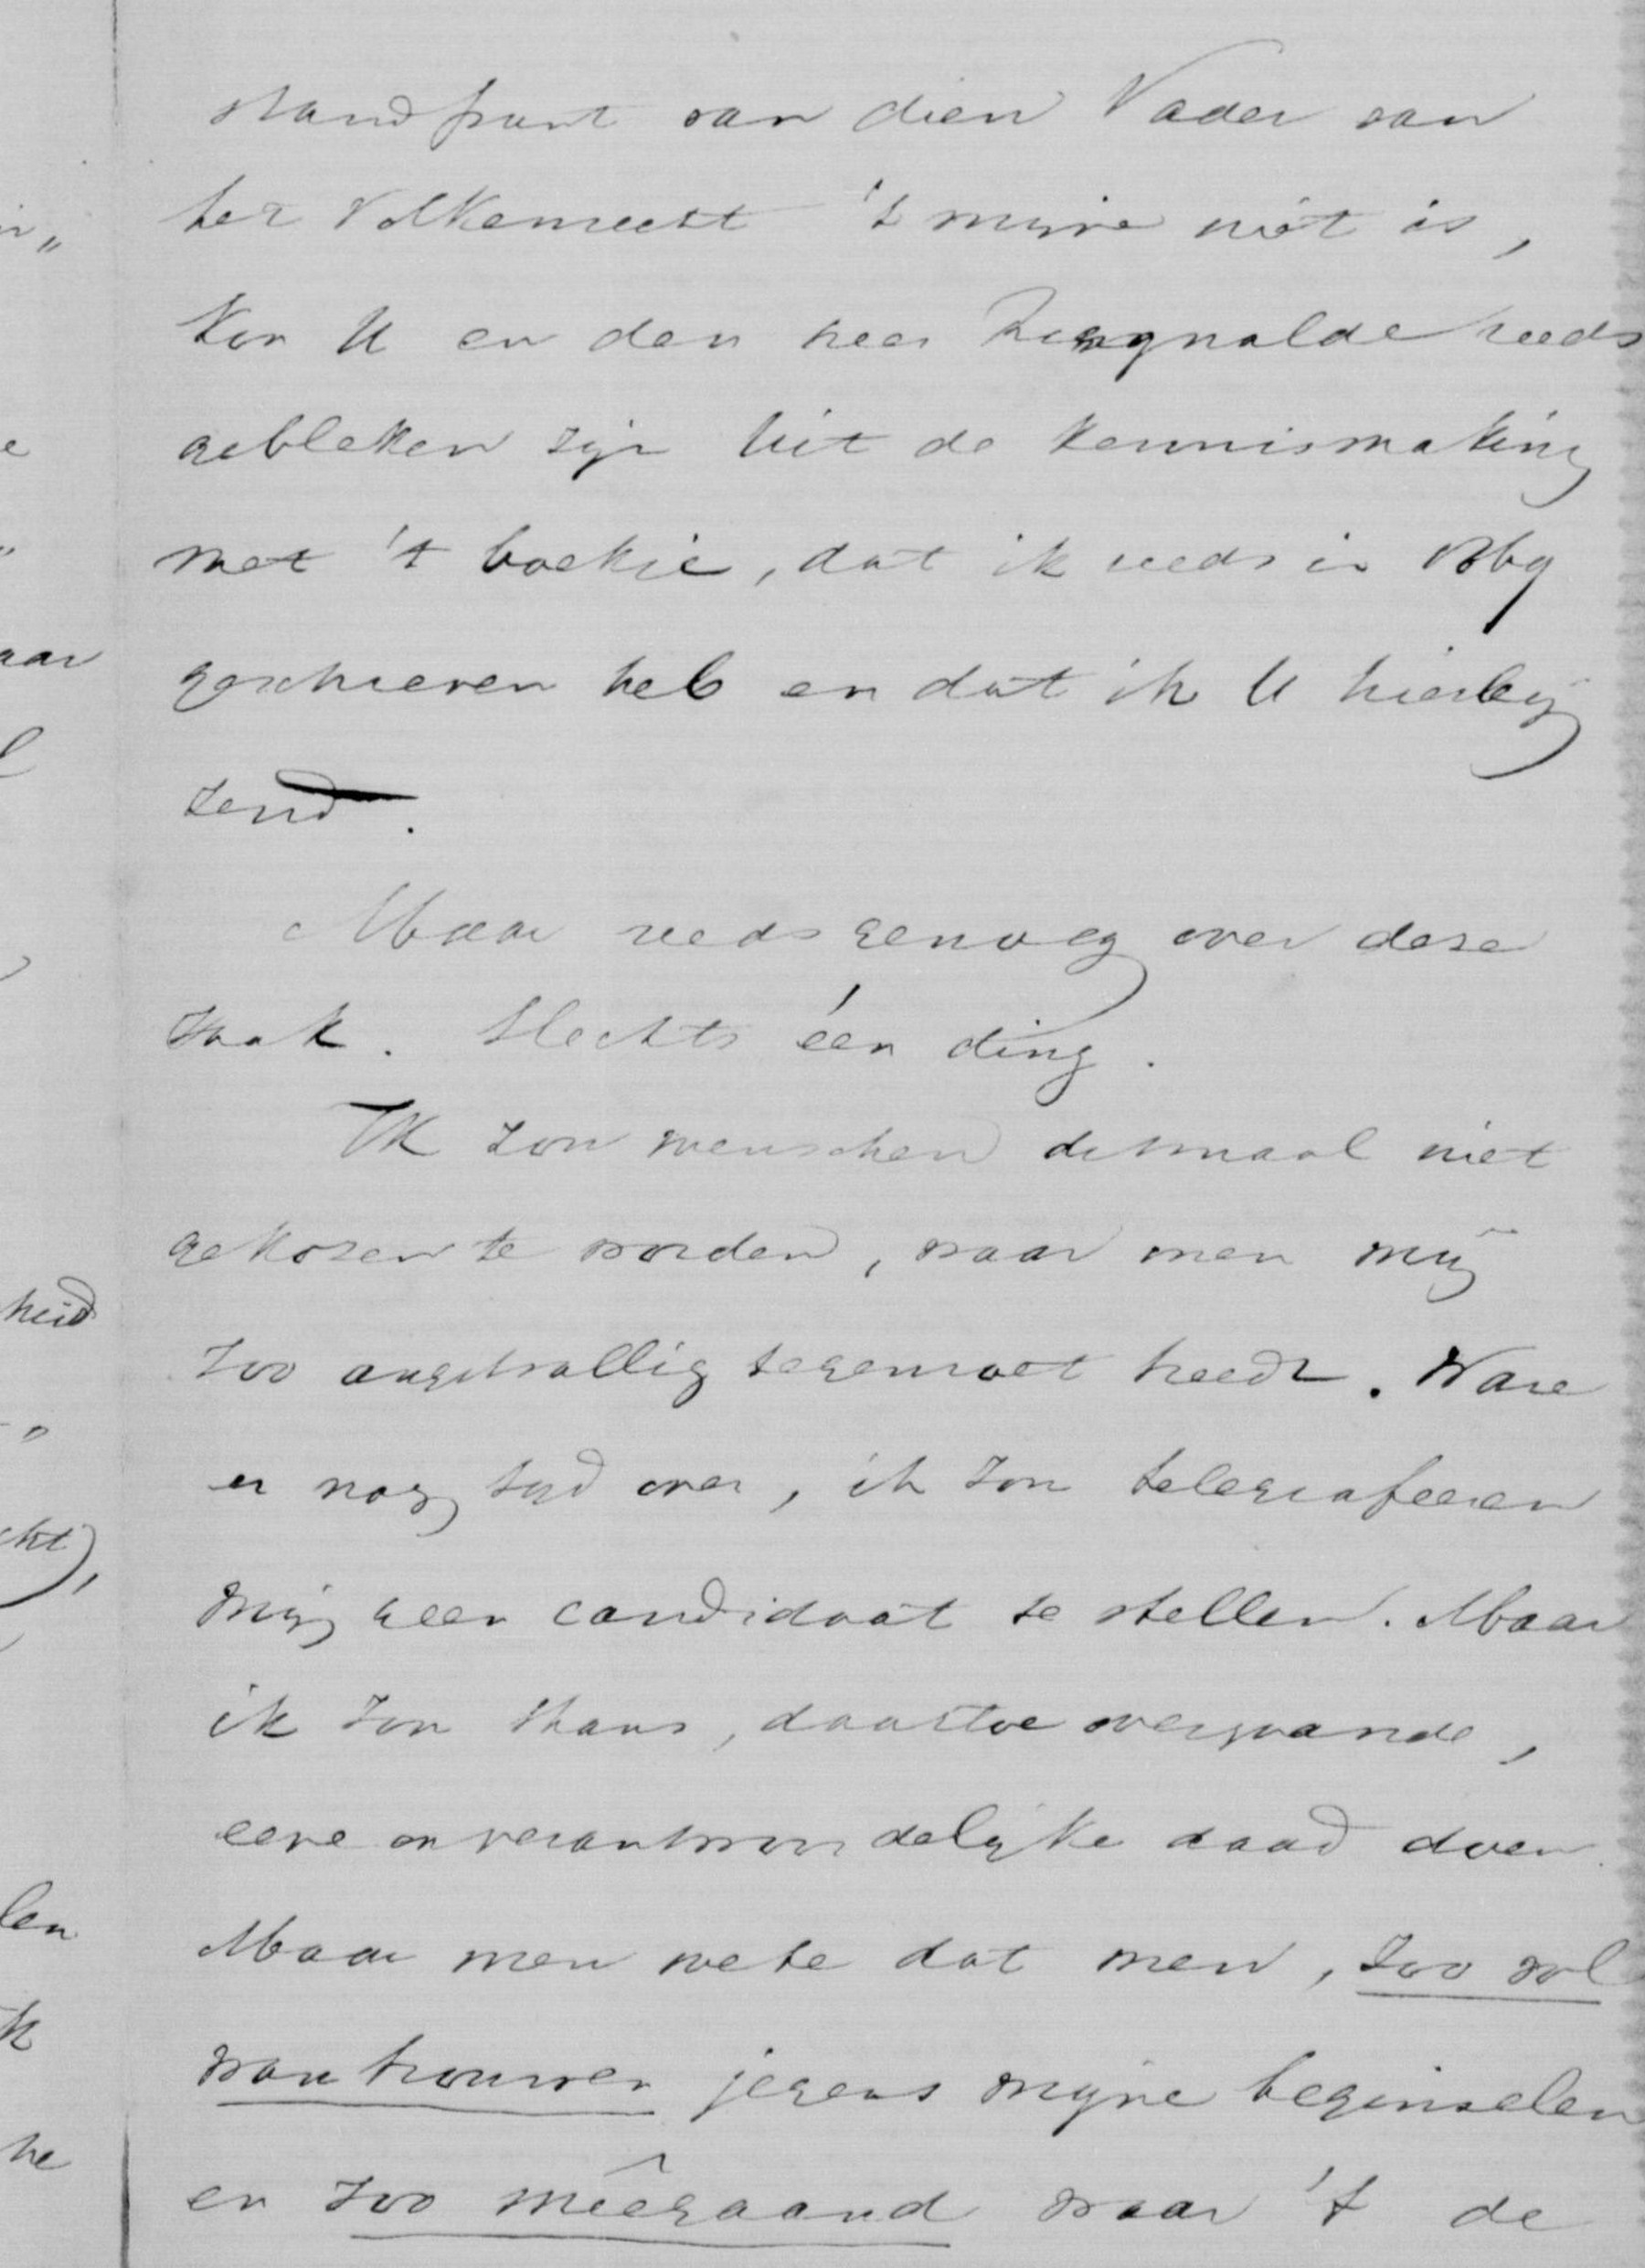 standpunt van dien Vader van
het Volkenrecht 't mijne niet is,
kon U en den heer reeds
gebleken zijn uit de kennismaking
met 't boekje, dat ik reeds in Rbg
geschreven heb en dat ik U hierbij
zend.
Maar reeds genoeg over deze
zaak. Slechts één ding.
Ik zou wenschen ditmaal niet
gekozen te worden, waar men mij
zoo angstvallig tegemoet treedt. Ware
er nog tijd over, ik zou telegrafeeren
mij geen candidaat te stellen. Maar
ik zou thans, daartoe overgaande,
eene onverantwoordelijke daad doen.
Maar men wete dat men, zoo vol
wantrouwen jegens mijne beginselen
en zoo meêgaand waar 't de